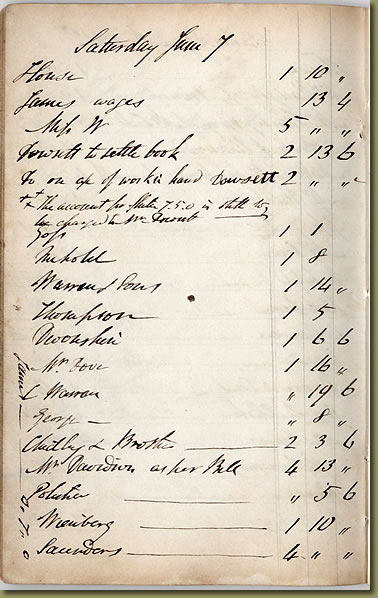 Saturday June 7
House 1 10 "
James wages 13 4
Miss W 5 " "
Dowsett to settle book 2 13 6
Do on a/c of work in hand Dowsett 2 " "
the account for slates 7.5.0 is still to
be charged to Mr Dowsett
Goss 1 1
Nicholl 1 8
Warren & Sons 1 14 "
Thompson 1 5
Devonshire 1 6 6
Mr Dove 1 16 "
Warren " 19 6
George " 8 "
& Brother 2 3 6
Mr Davidson as per Bill 4 13 "
" 5 6
Wienberg 1 10 "
Saunders 4 " "